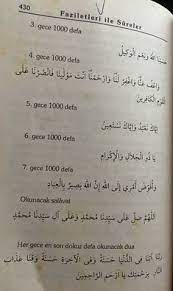 430
Faziletleri ile Sûreler
3. gece 1000 defa
حَسْبُنَا اللهُ وَنِعْمَ الْوَكِيلُ
4. gece 1000 defa
وَاعْفُ عَنَّا وَاغْفِرْ لَنَا وَارْحَمْنَا أَنْتَ مَوْلَينَا فَانْصُرْنَا عَلَى
الْقَوْمِ الْكَافِرِينَ
5. gece 1000 defa
إِيَّاكَ نَعْبُدُ وَإِيَّاكَ نَسْتَعِينُ
6. gece 1000 defa
يَا ذَا الْجَلَالِ وَالْإِكْرَامِ
7. gece 1000 defa
وَأُفَوِّضُ أَمْرِي إِلَى اللهِ إِنَّ اللهَ بَصِيرٌ بِالْعِبَادِ
Okunacak salâvat
اَللّٰهُمَّ صَلِّ عَلَى سَيِّدِنَا مُحَمَّدٍ وَعَلَى آلِ سَيِّدِنَا مُحَمَّدٍ
Her gece en son dokuz defa okunacak dua
رَبَّنَا آتِنَا فِي الدُّنْيَا حَسَنَةً وَفِي الْآخِرَةِ حَسَنَةً وَقِنَا عَذَابَ
النَّارِ بِرَحْمَتِكَ يَا أَرْحَمَ الرَّاحِمِينَ